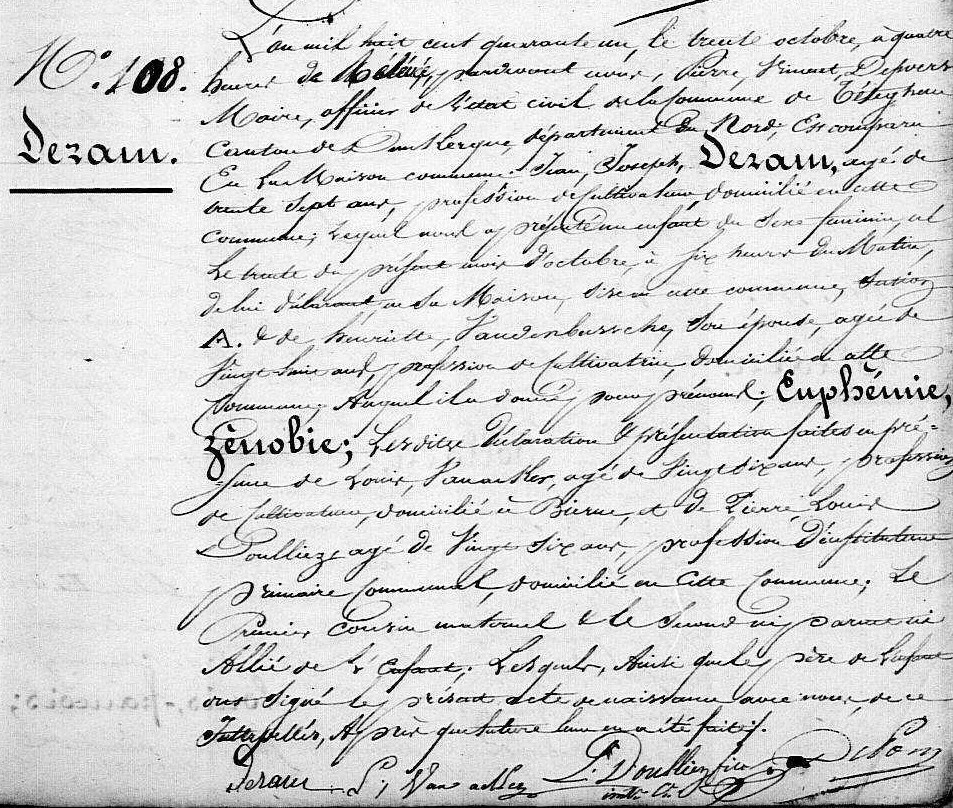 N.° 108.
Dezam.
L'an mil huit cent quarante un, le trente octobre, à quatre
heures de Rélévée, pardevant nous, Pierre, Vincent, Depoers
Maire, officier de l'état civil de la Commune de Téteghem
Canton de Dunkerque, département du Nord, Est comparu
En La Maison commune: Jean, Joseph, Dezam, agé de
trente sept ans, profession de Cultivateur, domicilié en cette
Commune; Lequel nous a présenté un enfant du sexe féminin, né
Le trente du présent mois d'octobre, à six heures du Matin,
de lui déclarant, en Sa Maison, sise en cette commune, Section
A. & de henriette, Vandenbussche, Son épouse, agée de
Vingt huit ans, profession de Cultivatrice, domiciliée en cette
Commune; Auquel il a donné pour prénoms; Euphémie,
Zénobie; Lesdites déclaration & présentation faites en pré-
-sence de Louis, Vanacker, agé de Vingt six ans, profession
de Cultivateur, domicilié à Bierne, et de Pierre Louis
Doulliez, agé de Vingt six ans, profession d'instituteur
primaire Communal, domicilié en Cette Commune; Le
Premier cousin maternel & le Second ni parent ni
Allié de L'Enfant; Lesquels, Ainsi que le père de L'enfant
ont Signé le présent acte de naissance avec nous, de ce
Interpellés, Après que lecture leur en a été faite.
Dezam L; Van acker P. L. Doulliez fils